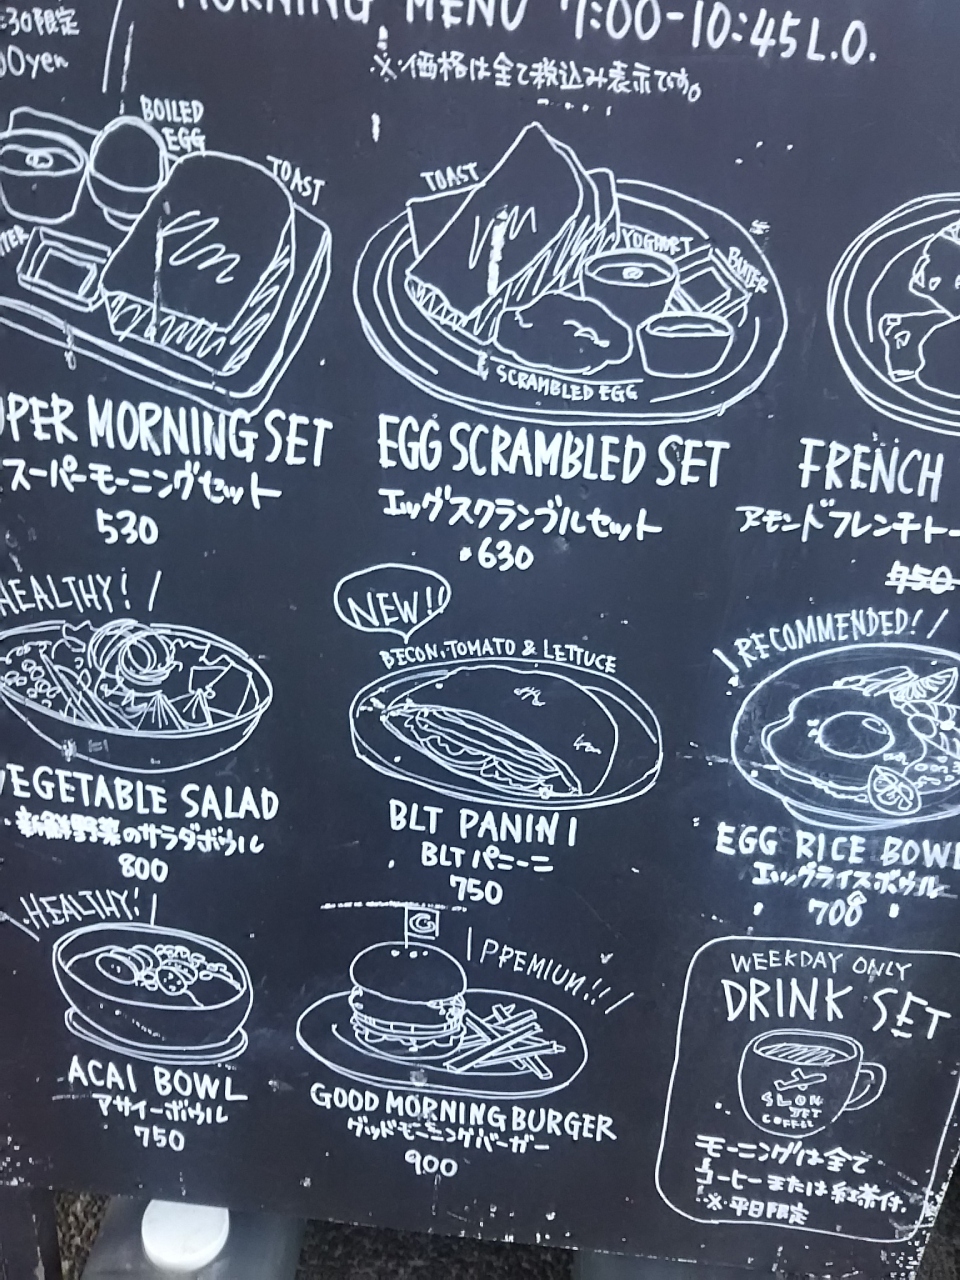 :30限定
00yen
MORNING MENU 7:00-10:45 L.O.
※価格は全て税込み表示です。
BOILED
EGG
TOAST
TOAST
YOGHURT
BUTTER
SCRAMBLED EGG
UPER MORNING SET
スーパーモーニングセット
530
EGG SCRAMBLED SET
エッグスクランブルセット
630
FRENCH
アモンドフレンチトー
HEALTHY!
VEGETABLE SALAD
新鮮野菜のサラダボウル
800
NEW!!
BECON, TOMATO & LETTUCE
BLT PANINI
BLTパニーニ
750
RECOMMENDED!
EGG RICE BOWL
エッグライスボウル
700
HEALTHY!
ACAI BOWL
アサイーボウル
750
G
PREMIUM!!
GOOD MORNING BURGER
グッドモーニングバーガー
900
WEEKDAY ONLY
DRINK SET
SLOW
JET
COFFEE
モーニングは全て
コーヒーまたは紅茶付。
※平日限定